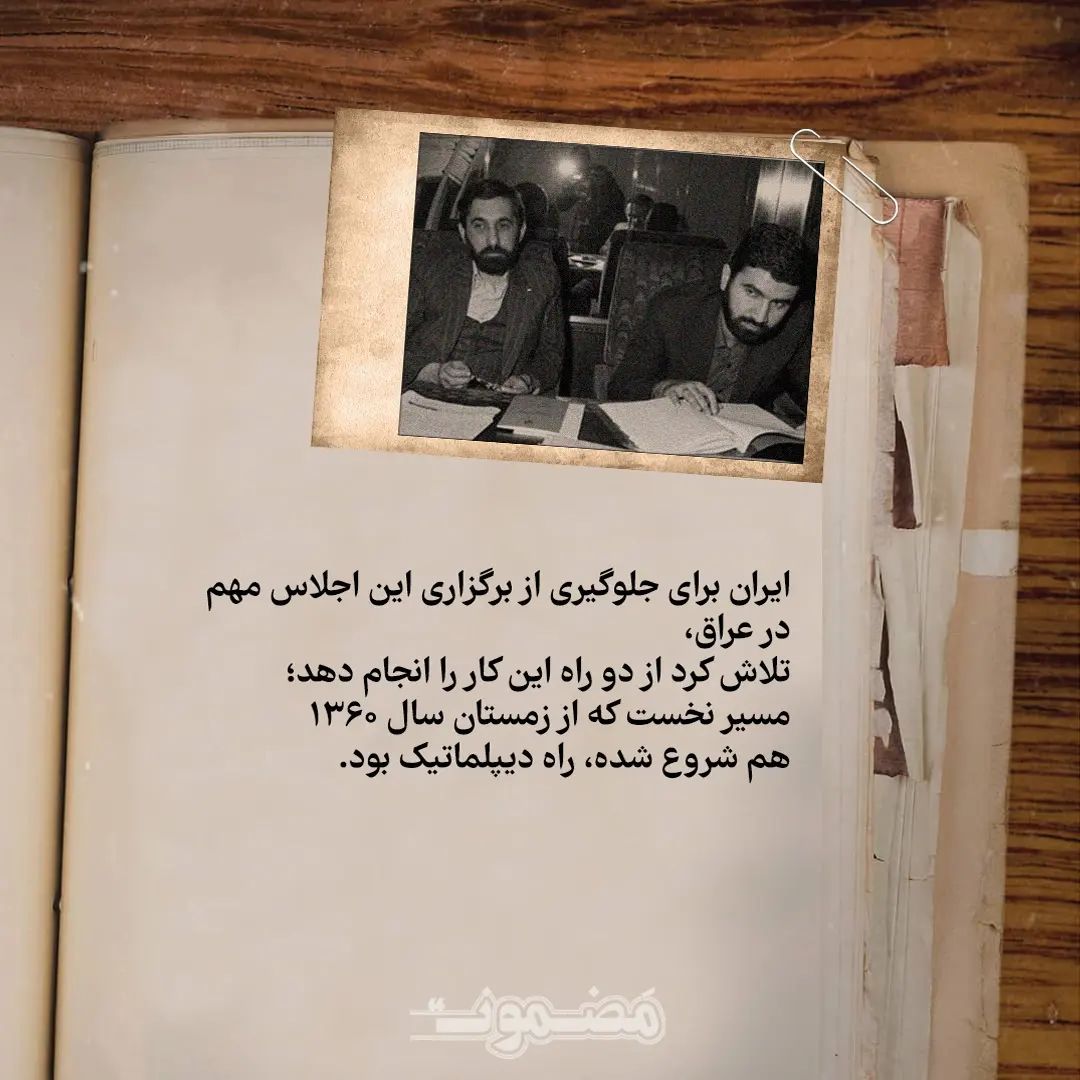 ایران برای جلوگیری از برگزاری این اجلاس مهم
در عراق،
تلاش کرد از دو راه این کار را انجام دهد؛
مسیر نخست که از زمستان سال ۱۳۶۰
هم شروع شده، راه دیپلماتیک بود.
مَضمون